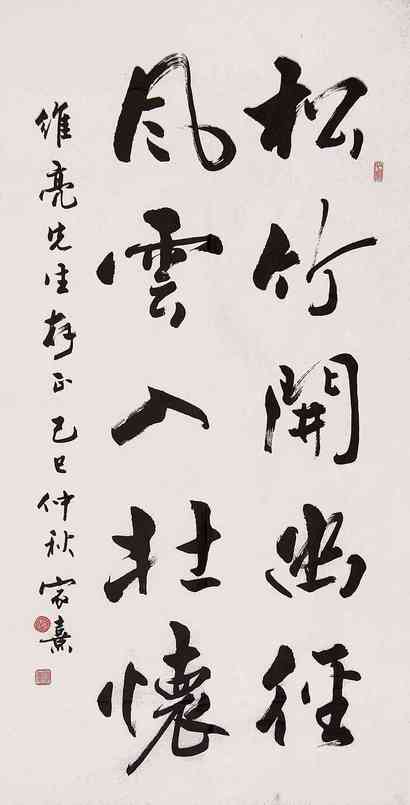 松竹開幽徑
風雲入壯懷
維亮先生存正己巳仲秋家熹